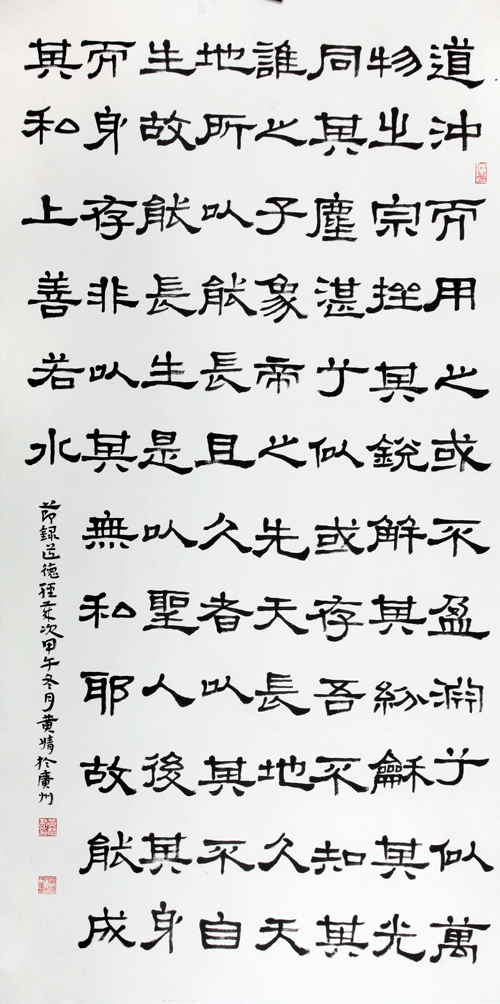 道沖而用之或不盈淵乎似萬
物之宗挫其銳解其紛龢其光
同其塵湛乎似或存吾不知其
誰之子象帝之先天長地久天
地所以能長且久者以其不自
生故能長生是以聖人後其身
而身存非以其無私耶故能成
其私上善若水
節録道德經歲次甲午冬月黄於廣州